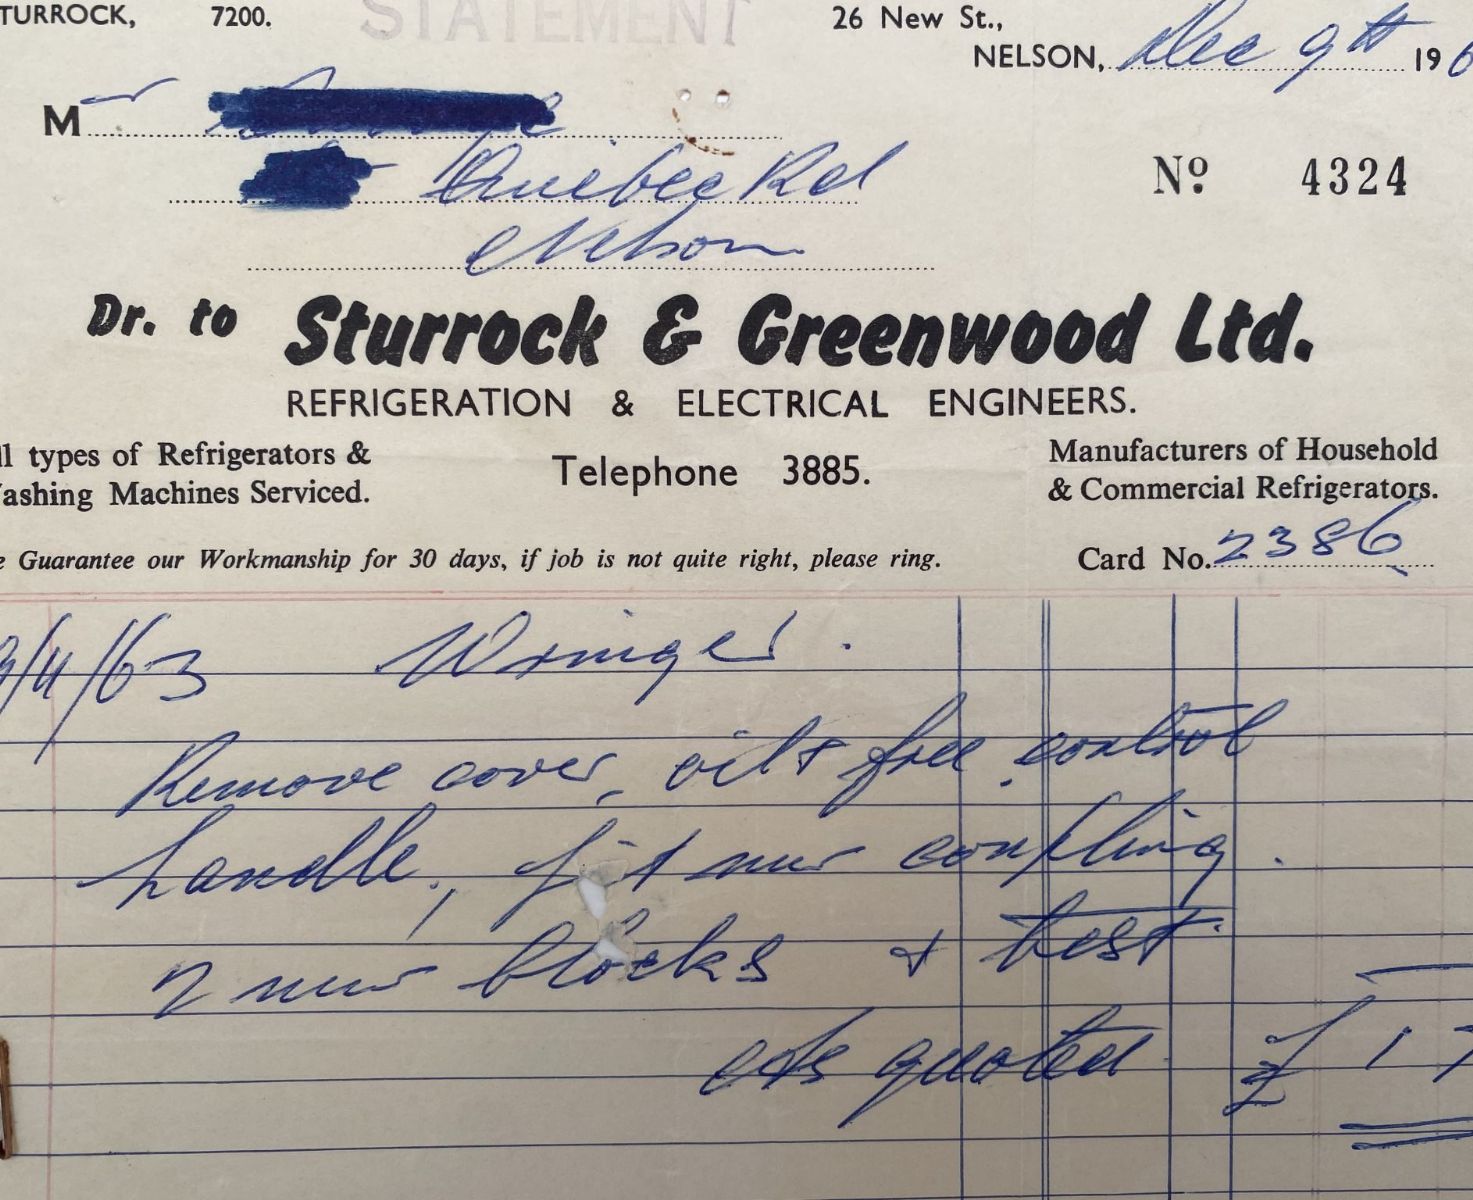 TURROCK, 7200. STATEMENT 26 New St.,
NELSON, Dec 9th 196
Mr
Quebec Rd Nº 4324
Nelson
Dr. to Sturrock & Greenwood Ltd.
REFRIGERATION & ELECTRICAL ENGINEERS.
ll types of Refrigerators & Manufacturers of Household
Telephone 3885.
ashing Machines Serviced. & Commercial Refrigerators.
e Guarantee our Workmanship for 30 days, if job is not quite right, please ring. Card No. 2386
9/4/63 Wringer.
Remove cover, oil & free control
handle, fit new coupling.
2 new blocks & test.
As quoted £ 1 7